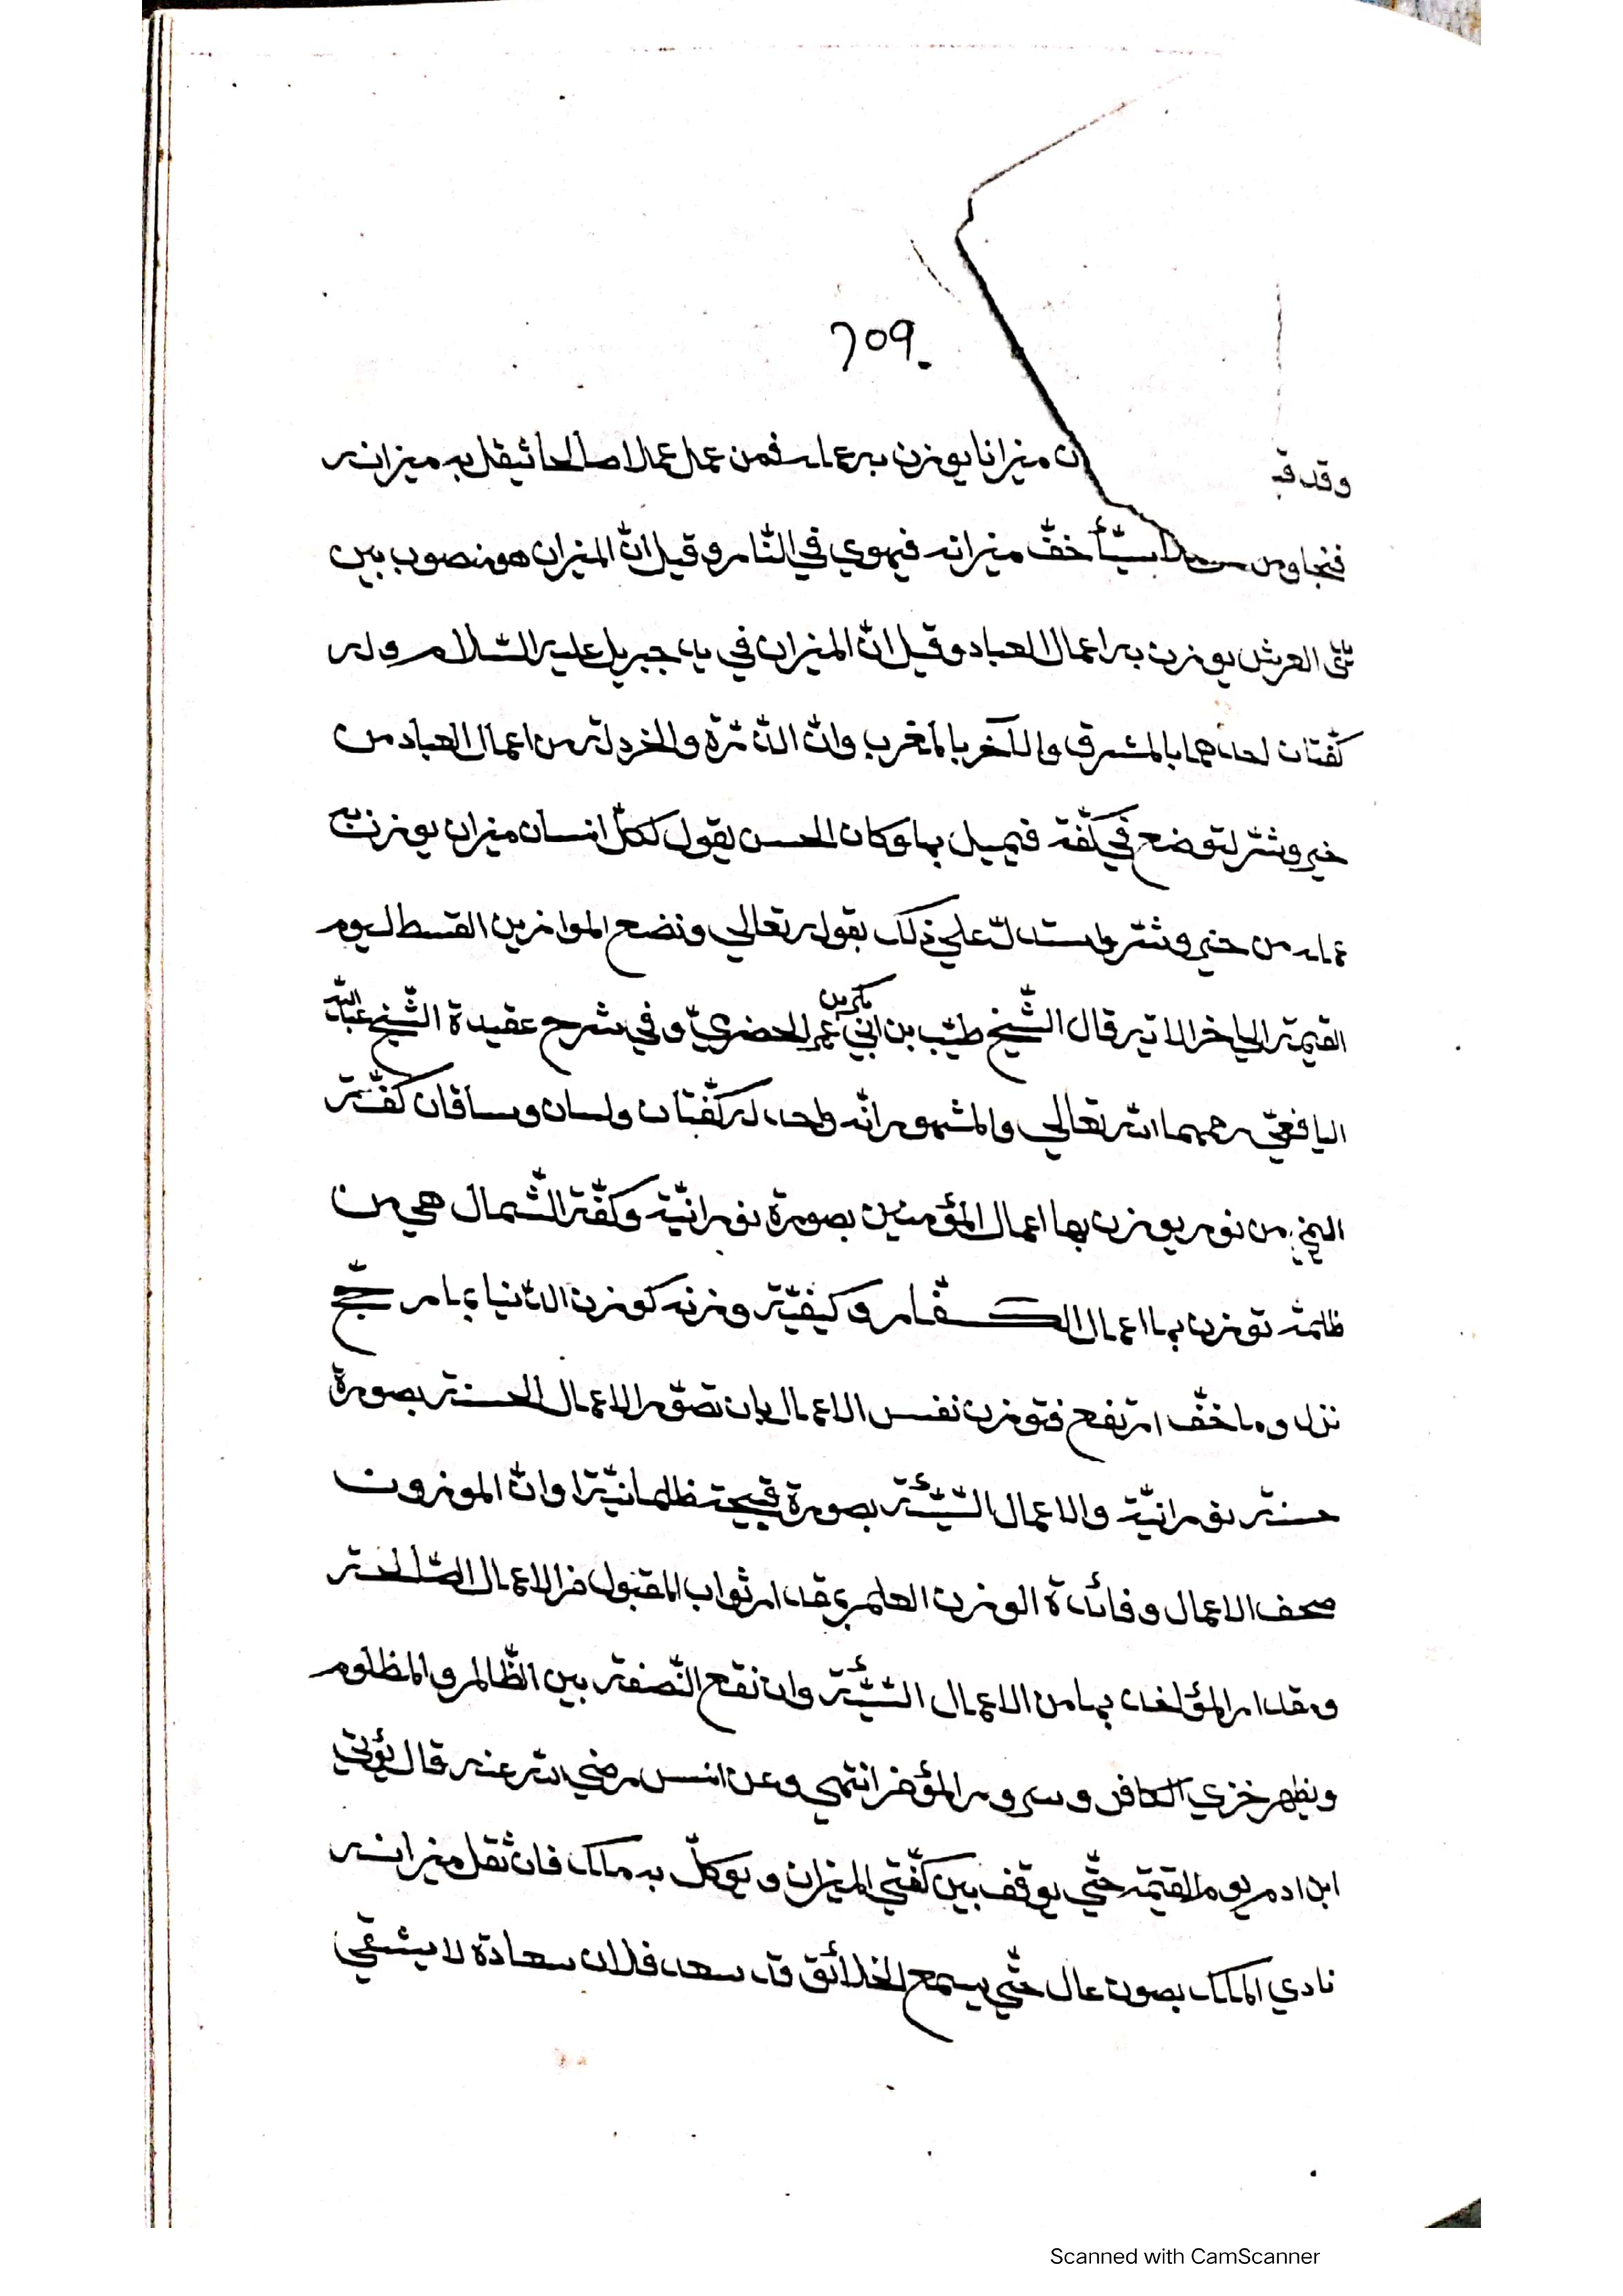 ٢٥٩
وقد قيـ ن ميزانا يوزن به عمله فمن عمل عملا صالحا ثيقل به ميزانه
فنجا ومن سيّأ خفّ ميزانه فيهوي في النّار وقيل انّ الميزان هو منصوب بين
العرش يوزن به اعمال العباد وقيل انّ الميزان في يد جبريل عليه السّلام وله
كفّتان احدهما بالمشرق والآخر بالمغرب وانّ الذّرّة والخردلة من اعمال العباد من
خير وشرّ لتوضع في كفّته فيميل بها وكان الحسن يقول لكلّ انسان ميزان يوزن به
عمله من خير وشرّ واستدلّ علي ذلك بقوله تعالي ونضع الموازين القسط ليوم
القيمة الي اخر الاية قال الشّيخ طيّب بن ابي بكر بن عمر الحضريّ وفي شرح عقيدة الشّيخ عبد اللّه
اليافعيّ رحمهما الله تعالي والمشهور انّه واحد له كفّتان ولسان وساقان كفّته
اليمني من نور يوزن بها اعمال المؤمنين بصورة نورانيّة وكفّة الشّمال هي من
ظلمة توزن بها اعمال الكفّار وكيفيّة وزنه كوزن الدّنيا ما رجّح
نزل وما خفّ ارتفع فتوزن نفس الاعمال بان تصوّر الاعمال الحسنة بصورة
حسنة نورانيّة والاعمال السّيّئة بصورة قبيحة ظلمانيّة او انّ الموزون
صحف الاعمال وفائدة الوزن العلم بمقدار ثواب المقبول من الاعمال الصّالحة
ومقدار المؤاخذ بها من الاعمال السّيّئة وان تقع النّصفة بين الظّالم والمظلوم
ويظهر خزي الكافر وسرور المؤمن انتهي وعن انس رضي الله عنه قال يؤتي
ابن ادم يوم القيمة حتّي يوقف بين كفّتي الميزان ويوكلّ به ملك فان ثقل ميزانه
نادي الملك بصوت عال حتّي يسمع الخلائق قد سعد فلان سعادة لا يشقي
Scanned with CamScanner